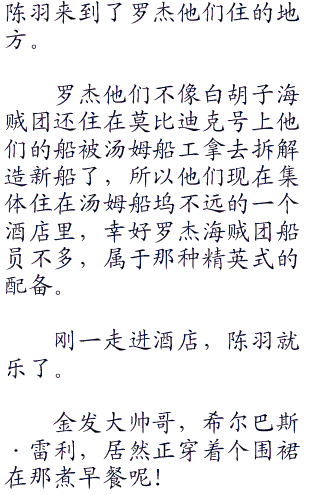 陈羽来到了罗杰他们住的地
方。
罗杰他们不像白胡子海
贼团还住在莫比迪克号上他
们的船被汤姆船工拿去拆解
造新船了，所以他们现在集
体住在汤姆船坞不远的一个
酒店里，幸好罗杰海贼团船
员不多，属于那种精英式的
配备。
刚一走进酒店，陈羽就
乐了。
金发大帅哥，希尔巴斯
·雷利，居然正穿着个围裙
在那煮早餐呢！